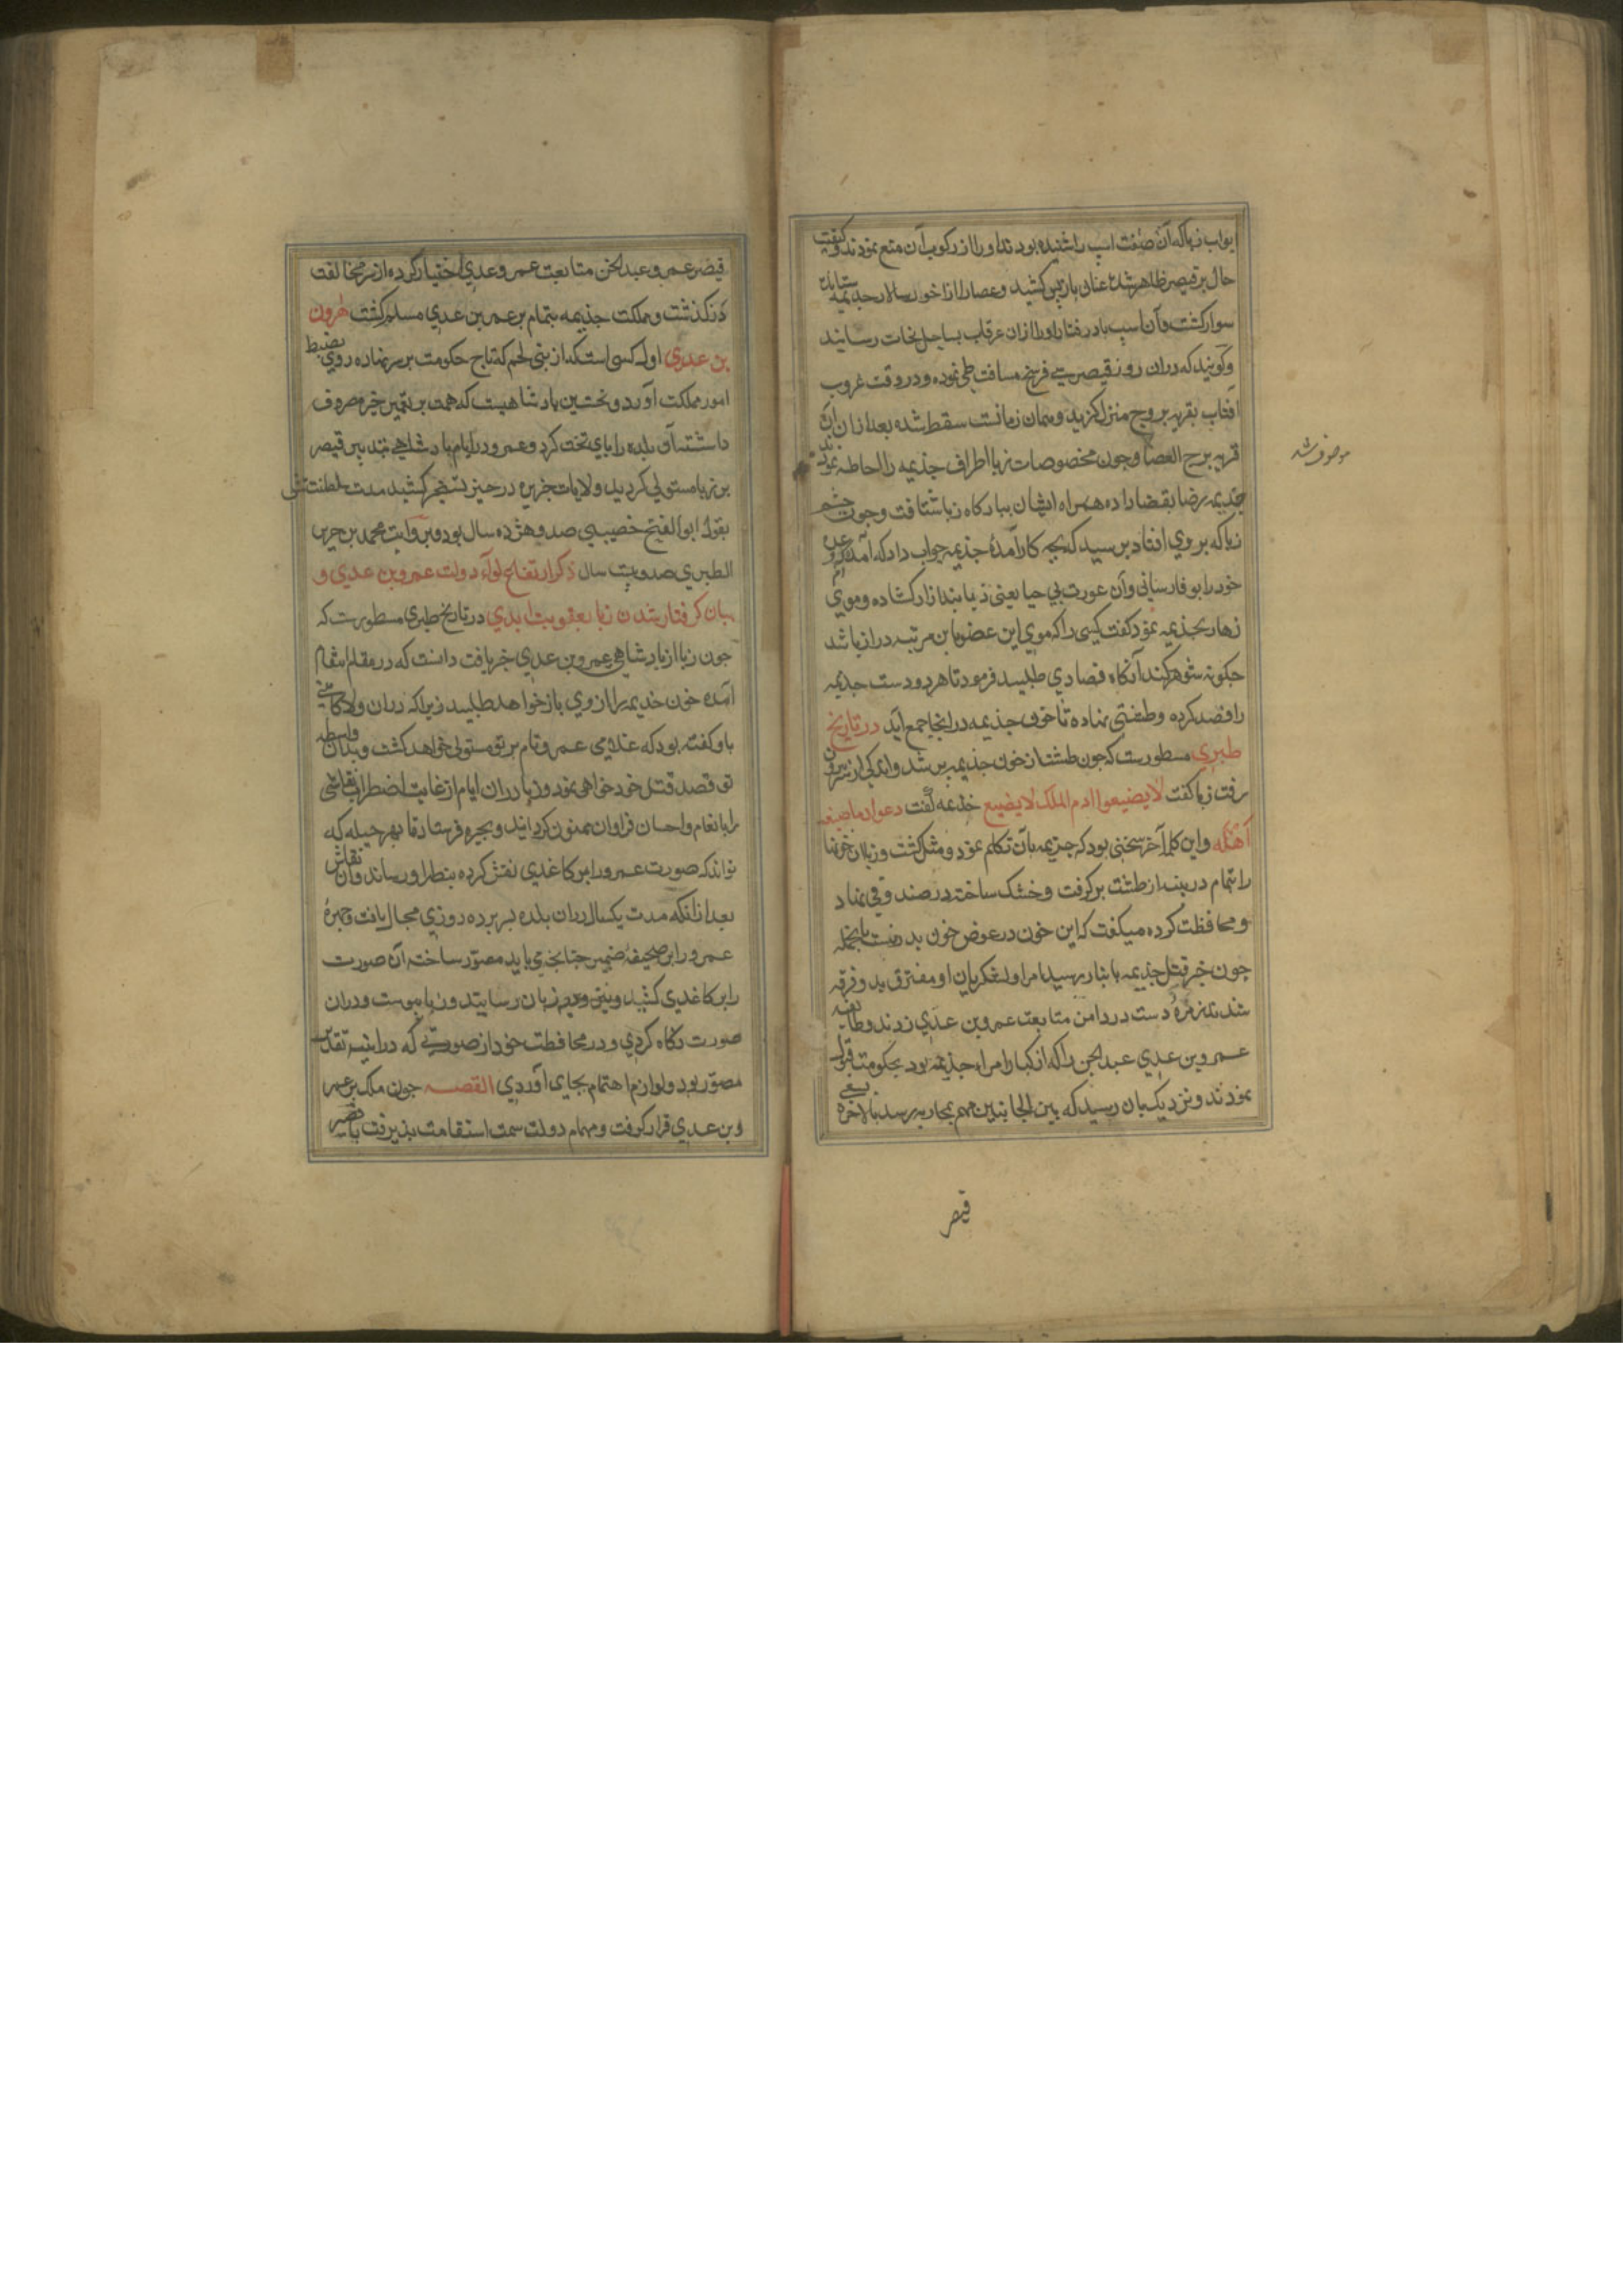 ابواب زبا که آن صفت اسپ را شنیده بودند او را از رکوب آن منع نمودند و کیفیت
حال بر قیصر ظاهر شده عنان بازپس کشید و عصا را از اخور سالار جذیمه ستانده
سوار کشت و آن اسپ بادرفتار او را ازان غرقاب بساحل نجات رسانید
و کویند که دران روز قیصر سی فرسخ مسافت طی نموده و در وقت غروب
افتاب بقریه بروج منزل کزید و همان زمان اسپ سقط شده بعد ازان آن
قریه برج العصا و چون مخصوصان زبا اطراف جذیمه را احاطه نمودند
جذیمه رضا بقضا داده همراه ایشان ببارکاه زبا شتافت و چون چشم
زبا که بر وی افتاد پرسید که بچه کار آمدهٔ جذیمه جواب داد که آمده‌ام و عدهٔ
خود را بوفا رسانی و آن عورت بی حیا یعنی زبا بند ازار کشاده و موی
زهار بجذیمه نمود کفت کسی را که موی این عضو باین مرتبه دراز باشد
جکونه شوهر کند آنکاه فصادی طلبید فرمود تا هر دو دست جذیمه
را فصد کرده و طشتی نهاده تا خون جذیمه در انجا جمع آید در تاریخ
طبری مسطورست که جون طشت از خون جذیمه پر شد و اندکی از سر بیرون
رفت زبا کفت لا یضیعوا دم الملک لا یضیع جذیمه کفت دعوا دما ضیعه
اهله و این کلمه آخر سخنی بود که جذیمه بآن تکلم نمود و مثل کشت و زبا آن خونها
را بتمام در پنبه از طشت برکرفت و خشک ساخته در صندوقی نهاد
و محافظت کرده میکفت که این خون در عوض خون پدر منست بالجمله
جون خبر قتل جذیمه بانبار رسید امرا و لشکریان او مفترق بدو فرقه
شدند زمرهٔ دست در دامن متابعت عمرو بن عدی زدند و طایفه
عمرو بن عدی عبد الجن را که از کبار امراء جذیمه بود بحکومت قبول
نمودند و نزدیک بان رسید که بین الجانبین مهم بمحاربه رسد بالاخره بسعی
موصوف شد
قیصر
قیصر عمرو عبد الجن متابعت عمرو عدی اختیار کرده از سر مخالفت
درکذشت و مملکت جذیمه بتمام بر عمر بن عدی مسلم کشت هرون
بن عدی اول کسی است که از بنی لخم که تاج حکومت بر سر نهاده روی بضبط
امور مملکت آورد و نخستین پادشاهیست که همت بر تعمیر حیره مصروف
داشته آن بلده را پای تخت کرد و عمرو در ایام پادشاهی بتدبیر قیصر
بر زبا مستولی کردید و ولایات جزیره در حیز تسخیر کشید مدت سلطنتش
بقول ابو الفتح خصیبی صد و هژده سال بود و بروایت محمد بن جریر
الطبری صد و بیست سال ذکر ارتفاع لواء دولت عمرو بن عدی و
بیان کرفتار شدن زبا بعقوبت ابدی در تاریخ طبری مسطورست که
جون زبا از پادشاهی عمرو بن عدی خبر یافت دانست که در مقام انتقام
آمده خون جذیمه را از وی باز خواهد طلبید زیرا که دران ولا کاهنی
باو کفته بود که غلامی عمرو نام بر تو مستولی خواهد کشت و بدان واسطه
تو قصد قتل خود خواهی نمود و زبا دران ایام از غایت اضطراب نقاشی
را بانعام و احسان فراوان ممنون کردانید و بحیره فرستاد تا بهر حیله که
تواند که صورت عمرو را بر کاغدی نقش کرده بنظر او رساند و آن نقاش
بعد ازانکه مدت یکسال دران بلده بسر برده روزی مجال یافت و چهرهٔ
عمرو را بر صحیفهٔ ضمیر جنانجه باید مصور ساخته آن صورت
را بر کاغدی کشید و بنظر زبا رسانید و زبا پیوسته دران
صورت نکاه کردی و در محافظت خود از صورتی که در اینه تقدیر
مصور بود و لوازم اهتمام بجای آوردی القصه جون ملک بر عمر
و بن عدی قرار کرفت و مهام دولت سمت استقامت پذیرفت با قصیر